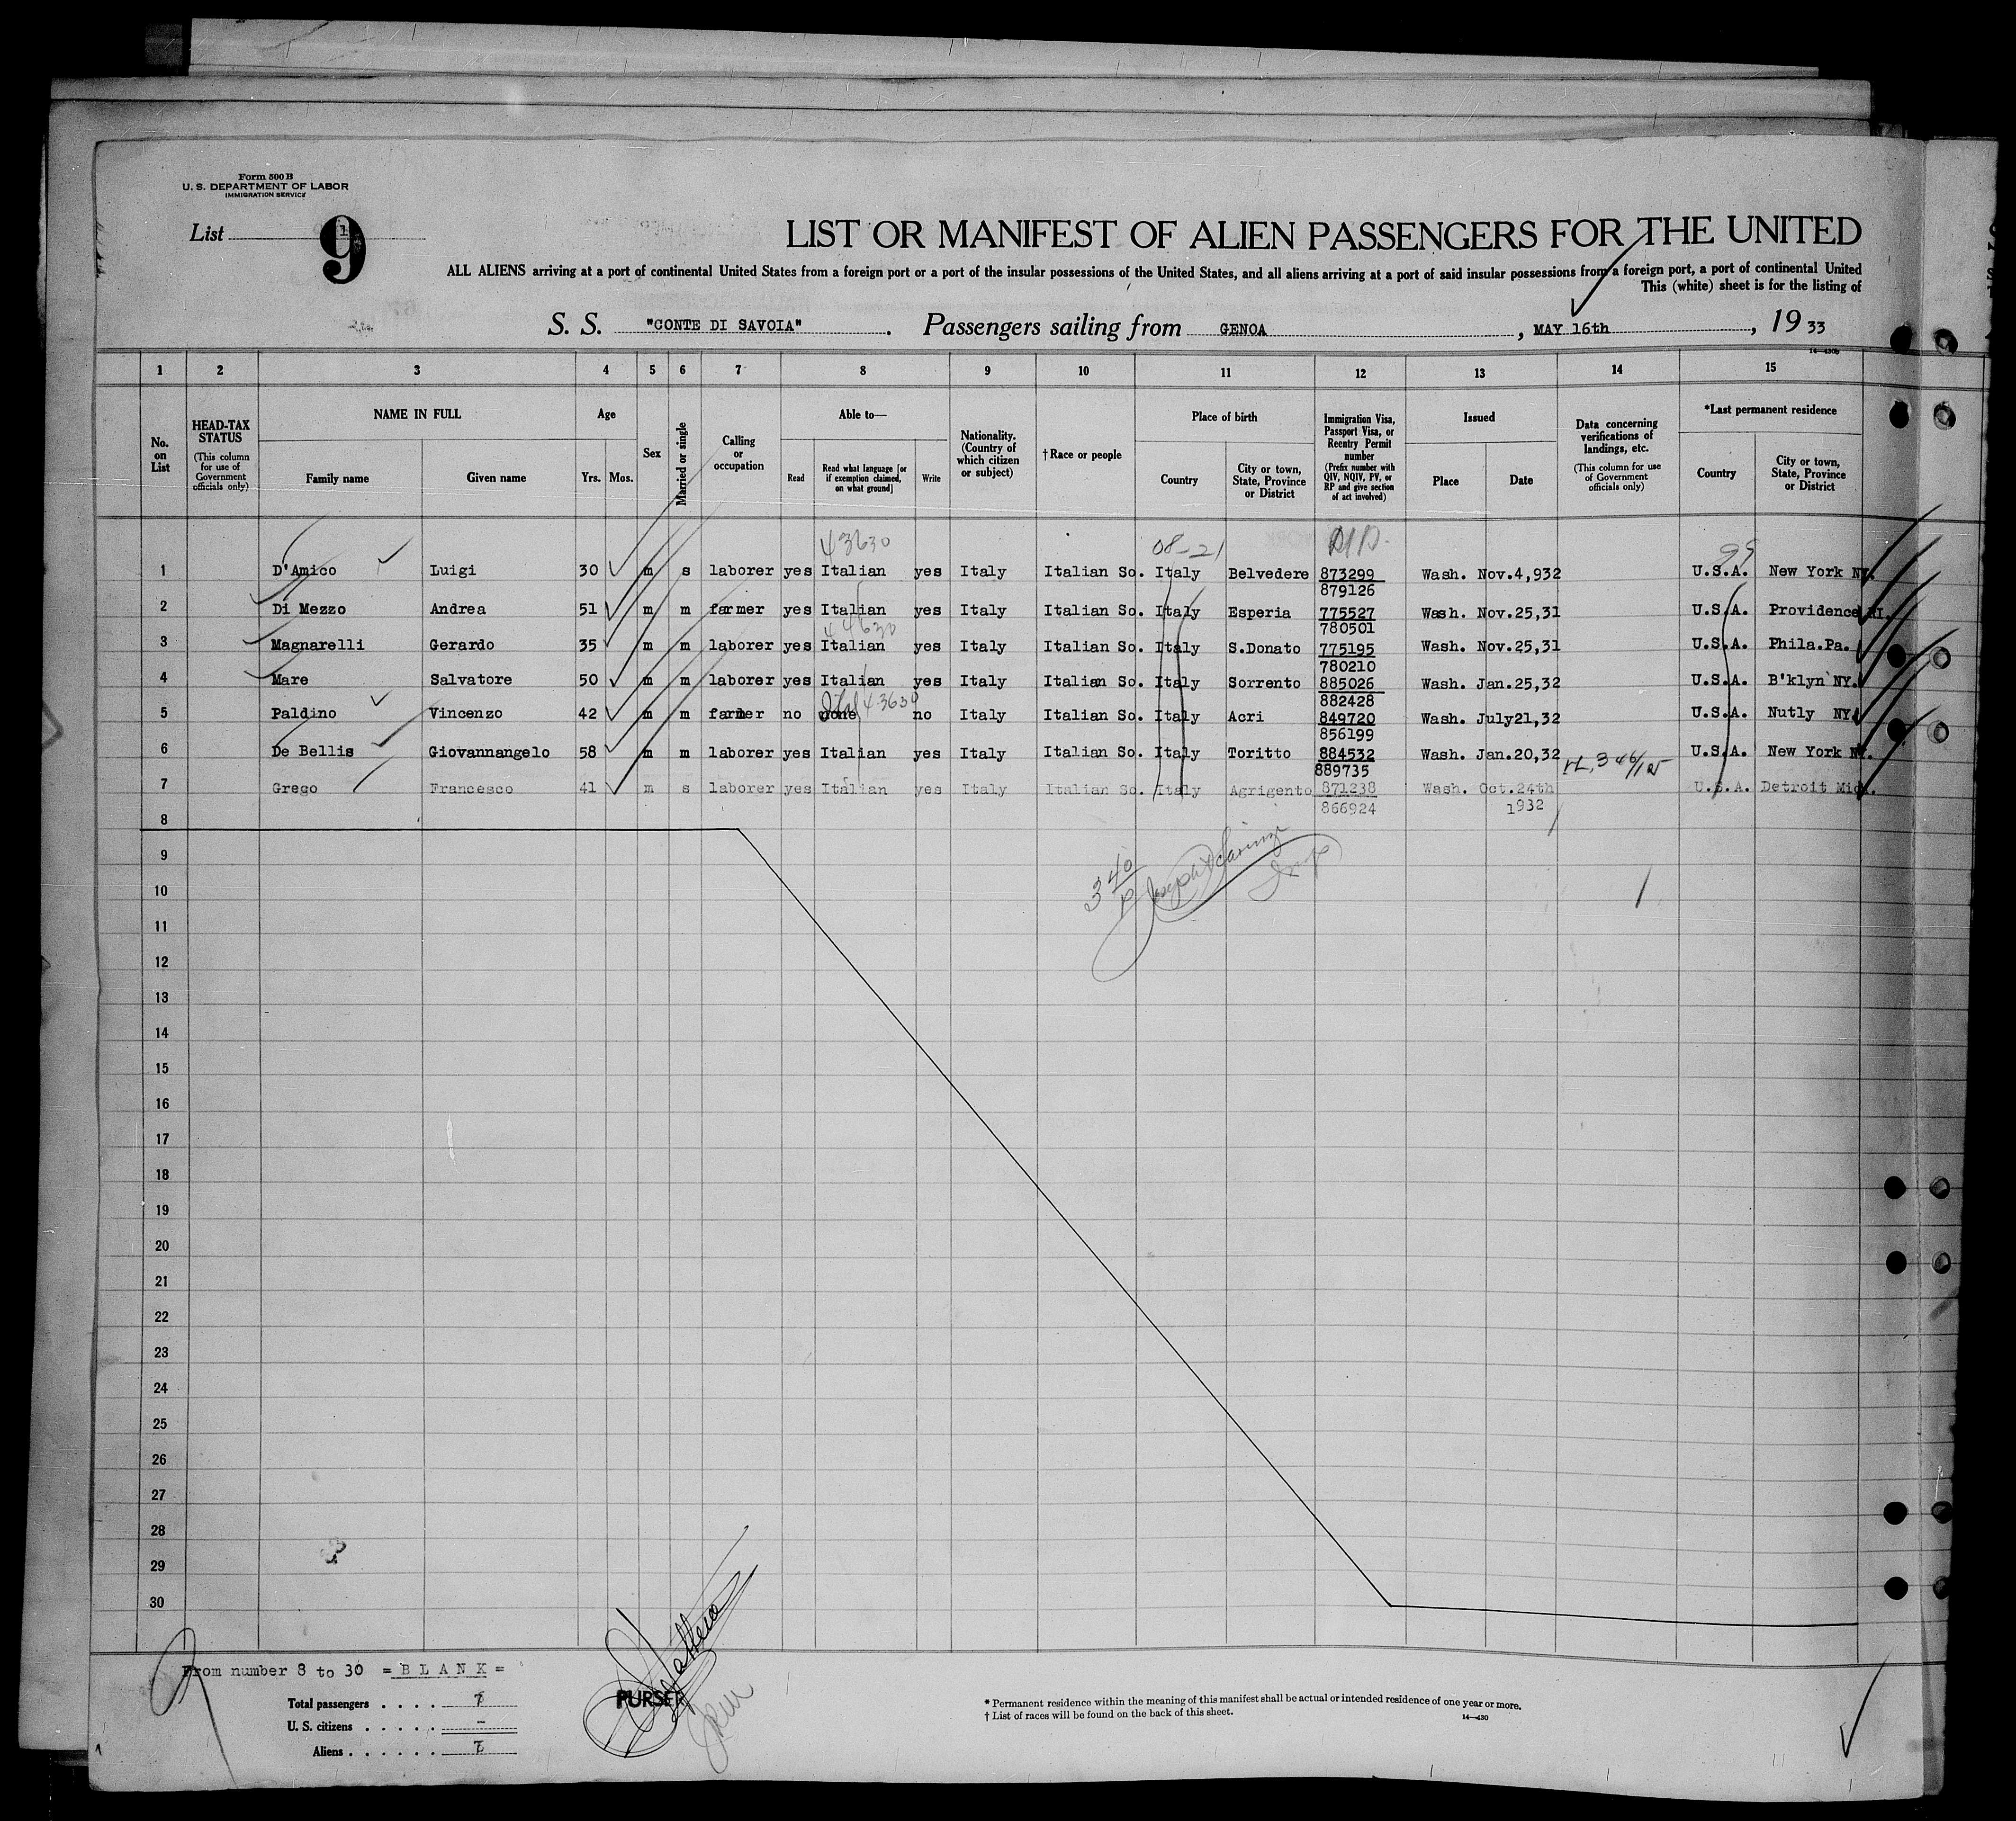 Form 500 B
U. S. DEPARTMENT OF LABOR
IMMIGRATION SERVICE
List 9
LIST OR MANIFEST OF ALIEN PASSENGERS FOR THE UNITED
ALL ALIENS arriving at a port of continental United States from a foreign port or a port of the insular possessions of the United States, and all aliens arriving at a port of said insular possessions from a foreign port, a port of continental United
This (white) sheet is for the listing of
S. S. "CONTE DI SAVOIA" . Passengers sailing from GENOA , MAY 16th , 19 33
14—430b
1 2 3 4 5 6 7 8 9 10 11 12 13 14 15
No. on List
HEAD-TAX STATUS (This column for use of Government officials only)
NAME IN FULL
Family name Given name
Age
Yrs. Mos.
Sex
Married or single
Calling or occupation
Able to—
Read Read what language [or if exemption claimed, on what ground] Write
Nationality. (Country of which citizen or subject)
†Race or people
Place of birth
Country City or town, State, Province or District
Immigration Visa, Passport Visa, or Reentry Permit number (Prefix number with QIV, NQIV, PV, or RP and give section of act involved)
Issued
Place Date
Data concerning verifications of landings, etc. (This column for use of Government officials only)
*Last permanent residence
Country City or town, State, Province or District
43630 08-21 99
1 D'Amico Luigi 30 m s laborer yes Italian yes Italy Italian So. Italy Belvedere 873299 Wash. Nov.4,932 U.S.A. New York NY.
879126
2 Di Mezzo Andrea 51 m m farmer yes Italian yes Italy Italian So. Italy Esperia 775527 Wash. Nov.25,31 U.S.A. Providence RI.
44630 780501
3 Magnarelli Gerardo 35 m m laborer yes Italian yes Italy Italian So. Italy S.Donato 775195 Wash. Nov.25,31 U.S.A. Phila.Pa.
780210
4 Mare Salvatore 50 m m laborer yes Italian yes Italy Italian So. Italy Sorrento 885026 Wash. Jan.25,32 U.S.A. B'klyn NY.
43630 882428
5 Paldino Vincenzo 42 m m farmer no none no Italy Italian So. Italy Acri 849720 Wash. July21,32 U.S.A. Nutly NY.
856199
6 De Bellis Giovannangelo 58 m m laborer yes Italian yes Italy Italian So. Italy Toritto 884532 Wash. Jan.20,32 U.S.A. New York NY.
889735
7 Grego Francesco 41 m s laborer yes Italian yes Italy Italian So. Italy Agrigento 871238 Wash. Oct.24th U.S.A. Detroit Mich.
8 866924 1932
9
10
11
12
13
14
15
16
17
18
19
20
21
22
23
24
25
26
27
28
29
30
340
From number 8 to 30 =BLANK=
Total passengers . . . . 7
U. S. citizens . . . . . -
Aliens . . . . . . 7
PURSER
* Permanent residence within the meaning of this manifest shall be actual or intended residence of one year or more.
† List of races will be found on the back of this sheet.
14—430